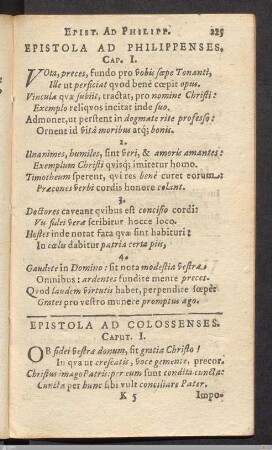 EPIST. AD PHILIPP. 225
EPISTOLA AD PHILIPPENSES.
CAP. I.
VOta, preces, fundo pro vobis sæpe Tonanti,
Ille ut perficiat qvod benè cœpit opus.
Vincula qvæ jubiit, tractat, pro nomine Christi:
Exemplo reliqvos incitat inde suo.
Admonet, ut perstent in dogmate rite professo:
Ornent id vitâ moribus atq; bonis.
2.
Unanimes, humiles, sint veri, & amoris amantes:
Exemplum Christi qvisq; imitetur homo.
Timotheum sperent, qvi res benè curet eorum:
Præcones verbi cordis honore colant.
3.
Doctores caveant qvibus est concisio cordi:
Vis fidei veræ scribitur hocce loco.
Hostes inde notat fata qvæ sint habituri:
In cœlu dabitur patria certa piis,
4.
Gaudete in Domino: sit nota modestia vestra
Omnibus: ardentes fundite mente preces.
Qvod laudem virtutis habet, perpendite sæpè:
Grates pro vestro munere promptus ago.
EPISTOLA AD COLOSSENSES.
CAPUT. I.
OB fidei vestræ donum, sit gratia Christo!
In qva ut crescatis, voce gemente, precor.
Christus imago Patris: per eum sunt condita cuncta:
Cuncta per hunc sibi vult conciliare Pater.
K 5 Impo-